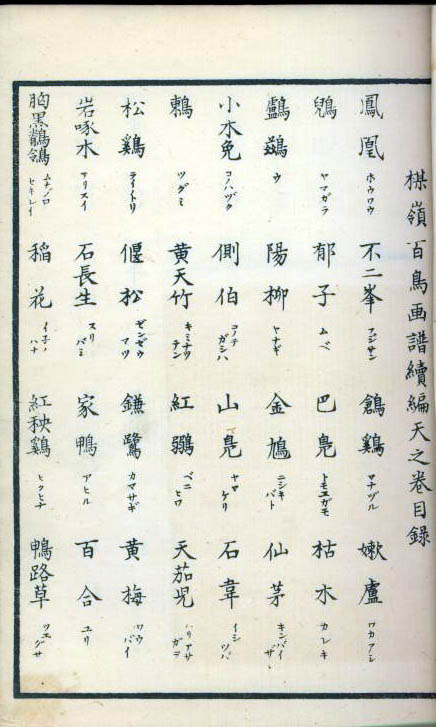 楳嶺百鳥画譜續編天之巻目録
鳳凰 ホウワウ 不二峯 フジサン 鶬鷄 マナヅル 嫩蘆 ワカアシ
鴲 ヤマガラ 郁子 ムベ 巴鳧 トモヱガモ 枯木 カレキ
鸕鷀 ウ 陽柳 ヤナギ 金鳩 ニシキバト 仙茅 キンバイザサ
小木兔 コノハヅク 側伯 コノテガシハ 山鳧 ヤマケリ 石韋 イシツバ
鶫 ツグミ 黄天竹 キミナツテン 紅鶸 ベニヒワ 天茄児 ハリアサガヲ
松鷄 ライトリ 偃松 ゼンゼウマツ 鎌鷺 カマサギ 黄梅 ワウバイ
岩啄木 アリスイ 石長生 スリバミ 家鴨 アヒル 百合 ユリ
胸黒鶺鴒 ムナグロセキレイ 稲花 イネノハナ 紅秧鷄 ヒクヒナ 鴨路草 ツユグサ